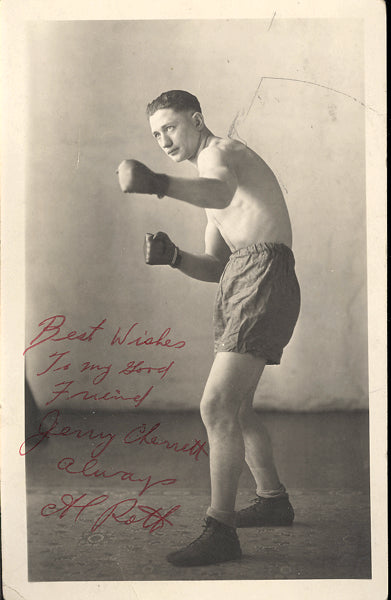 Best Wishes
To my good
Friend
Jerry Cherrett
always
Al Roth